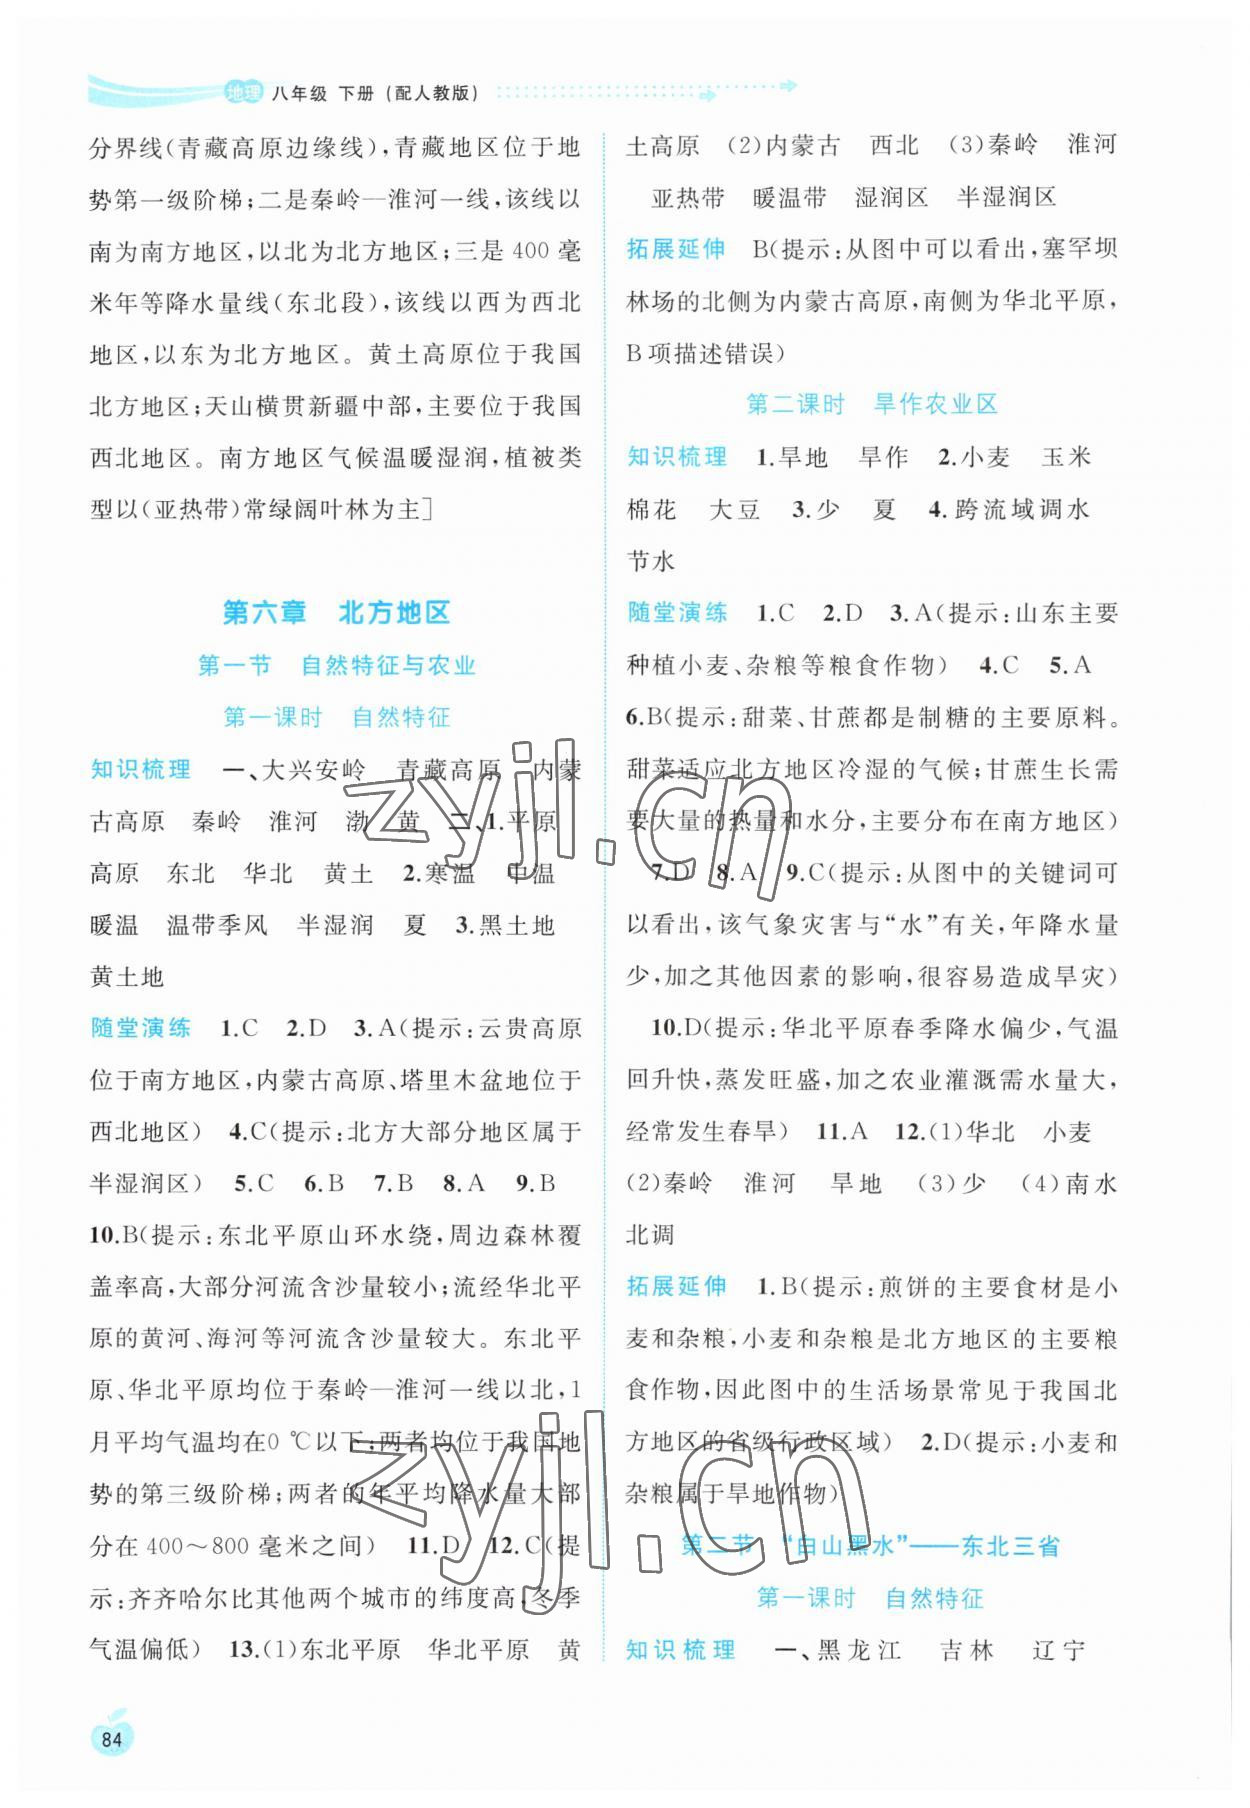 地理 八年级 下册(配人教版)
分界线(青藏高原边缘线),青藏地区位于地
势第一级阶梯;二是秦岭—淮河一线,该线以
南为南方地区,以北为北方地区;三是 400 毫
米年等降水量线(东北段),该线以西为西北
地区,以东为北方地区。黄土高原位于我国
北方地区;天山横贯新疆中部,主要位于我国
西北地区。南方地区气候温暖湿润,植被类
型以(亚热带)常绿阔叶林为主]
第六章 北方地区
第一节 自然特征与农业
第一课时 自然特征
知识梳理 一、大兴安岭 青藏高原 内蒙
古高原 秦岭 淮河 渤 黄 二、1.平原
高原 东北 华北 黄土 2.寒温 中温
暖温 温带季风 半湿润 夏 3.黑土地
黄土地
随堂演练 1.C 2.D 3.A(提示:云贵高原
位于南方地区,内蒙古高原、塔里木盆地位于
西北地区) 4.C(提示:北方大部分地区属于
半湿润区) 5.C 6.B 7.B 8.A 9.B
10.B(提示:东北平原山环水绕,周边森林覆
盖率高,大部分河流含沙量较小;流经华北平
原的黄河、海河等河流含沙量较大。东北平
原、华北平原均位于秦岭—淮河一线以北,1
月平均气温均在0 ℃以下;两者均位于我国地
势的第三级阶梯;两者的年平均降水量大部
分在 400～800 毫米之间) 11.D 12.C(提
示:齐齐哈尔比其他两个城市的纬度高,冬季
气温偏低) 13.(1)东北平原 华北平原 黄
土高原 (2)内蒙古 西北 (3)秦岭 淮河
亚热带 暖温带 湿润区 半湿润区
拓展延伸 B(提示:从图中可以看出,塞罕坝
林场的北侧为内蒙古高原,南侧为华北平原,
B 项描述错误)
第二课时 旱作农业区
知识梳理 1.旱地 旱作 2.小麦 玉米
棉花 大豆 3.少 夏 4.跨流域调水
节水
随堂演练 1.C 2.D 3.A(提示:山东主要
种植小麦、杂粮等粮食作物) 4.C 5.A
6.B(提示:甜菜、甘蔗都是制糖的主要原料。
甜菜适应北方地区冷湿的气候;甘蔗生长需
要大量的热量和水分,主要分布在南方地区)
7.D 8.A 9.C(提示:从图中的关键词可
以看出,该气象灾害与“水”有关,年降水量
少,加之其他因素的影响,很容易造成旱灾)
10.D(提示:华北平原春季降水偏少,气温
回升快,蒸发旺盛,加之农业灌溉需水量大,
经常发生春旱) 11.A 12.(1)华北 小麦
(2)秦岭 淮河 旱地 (3)少 (4)南水
北调
拓展延伸 1.B(提示:煎饼的主要食材是小
麦和杂粮,小麦和杂粮是北方地区的主要粮
食作物,因此图中的生活场景常见于我国北
方地区的省级行政区域) 2.D(提示:小麦和
杂粮属于旱地作物)
第二节 “白山黑水”——东北三省
第一课时 自然特征
知识梳理 一、黑龙江 吉林 辽宁
zyjl.cn
zyjl.cn
84